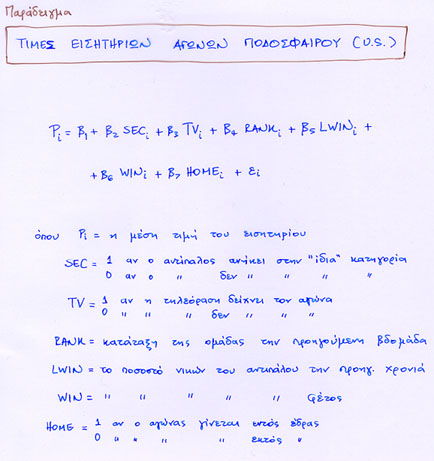 Παράδειγμα
ΤΙΜΕΣ ΕΙΣΗΤΗΡΙΩΝ ΑΓΩΝΩΝ ΠΟΔΟΣΦΑΙΡΟΥ (U.S.)
Pᵢ = β₁ + β₂ SECᵢ + β₃ TVᵢ + β₄ RANKᵢ + β₅ LWINᵢ +
+ β₆ WINᵢ + β₇ HOMEᵢ + εᵢ
όπου Pᵢ = η μέση τιμή του εισητηρίου
SEC = 1 αν ο αντίπαλος ανήκει στην "ίδια" κατηγορία
0 αν ο " δεν " " " "
TV = 1 αν η τηλεόραση δείχνει τον αγώνα
0 " " " δεν " " "
RANK = κατάταξη της ομάδας την προηγούμενη βδομάδα
LWIN = το ποσοστό νικών του αντιπάλου την προηγ. χρονιά
WIN = " " " " " φέτος
HOME = 1 αν ο αγώνας γίνεται εντός έδρας
0 " " " " εκτός "